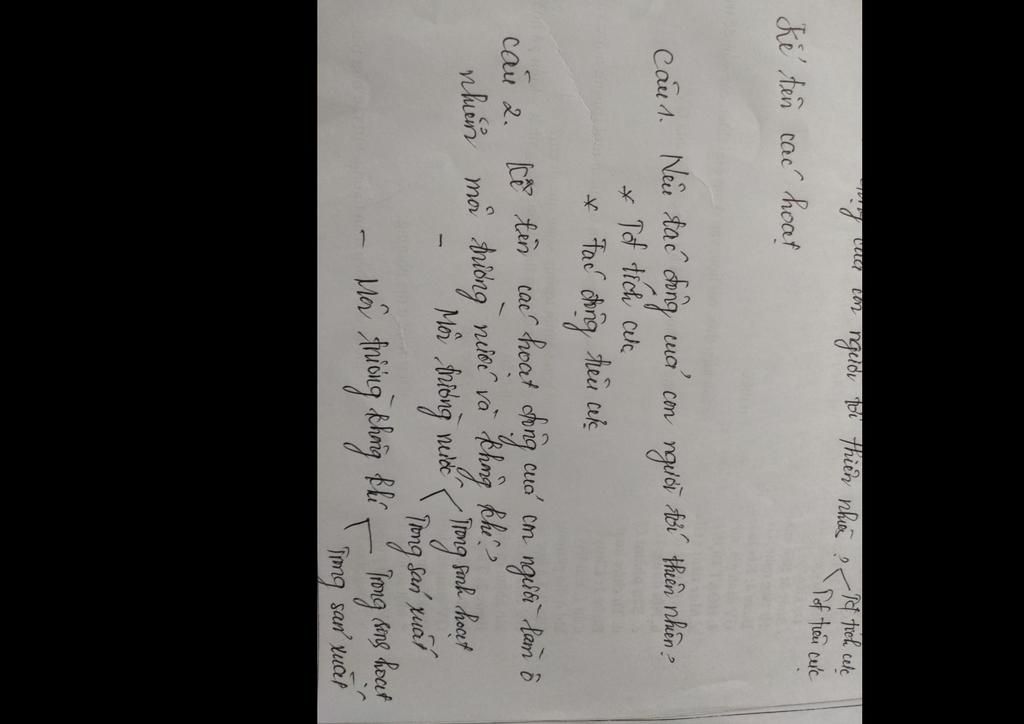 của con người tới thiên nhiê ? < Tđ tích cực
Tđ tiêu cực
Kể tên các hoạt
Câu 1. Nêu tác động của con người tới thiên nhiên?
* Tđ tích cực
* Tác động tiêu cực
Câu 2. Kể tên các hoạt động của con người làm ô
nhiễm môi trường nước và không khí?
- Môi trường nước < Trong sinh hoạt
Trong sản xuất
- Môi trường không khí < Trong sinh hoạt
Trong sản xuất